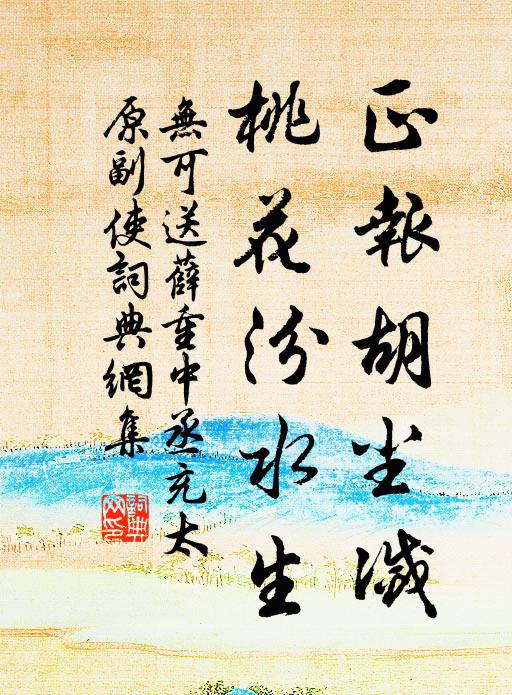 正報胡尘滅
桃花汾水生
無可送薛重中丞充太
原副使詞典網集
詞典